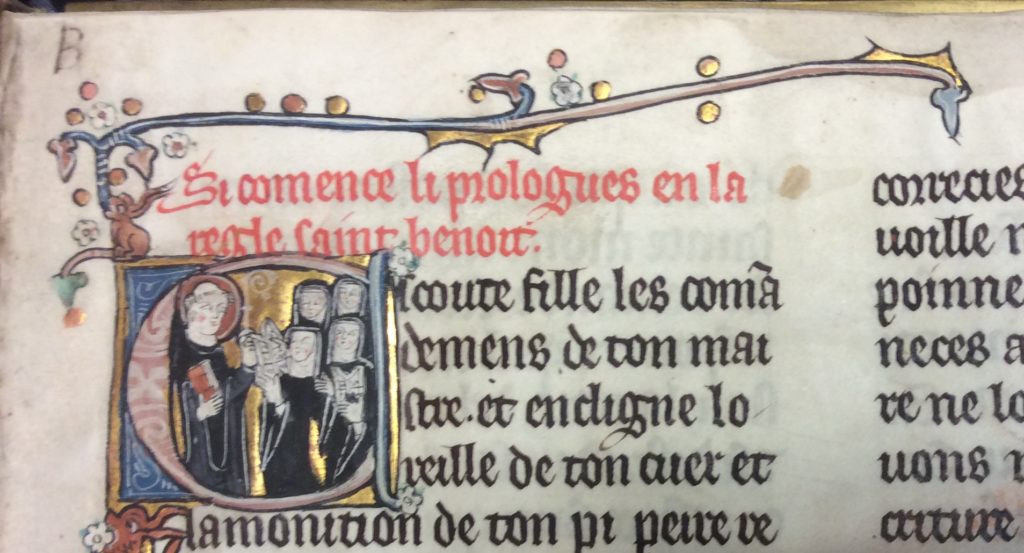 B
Si comence li prologues en la
regle saint benoit.
Escoute fille les comã
demens de ton mai
stre. et encligne lo
reille de ton cuer et
lamonition de ton pi peire re
correcies
uoille
poinne
neces a
re ne lo
uons
criture